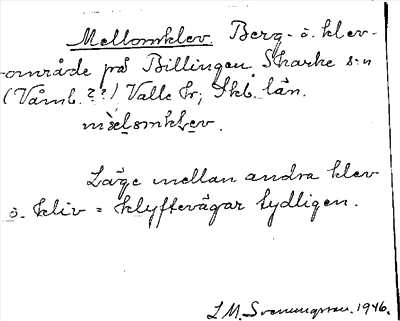 Mellomklev. Berg- o. klev-
område på Billingen, Skarke s:n
(Våmb.??) Valle hr; Skb. län.
mèlomklev.
Läge mellan andra klev
o. kliv = klyftevägar tydligen.
L M. Svenungsson. 1946.